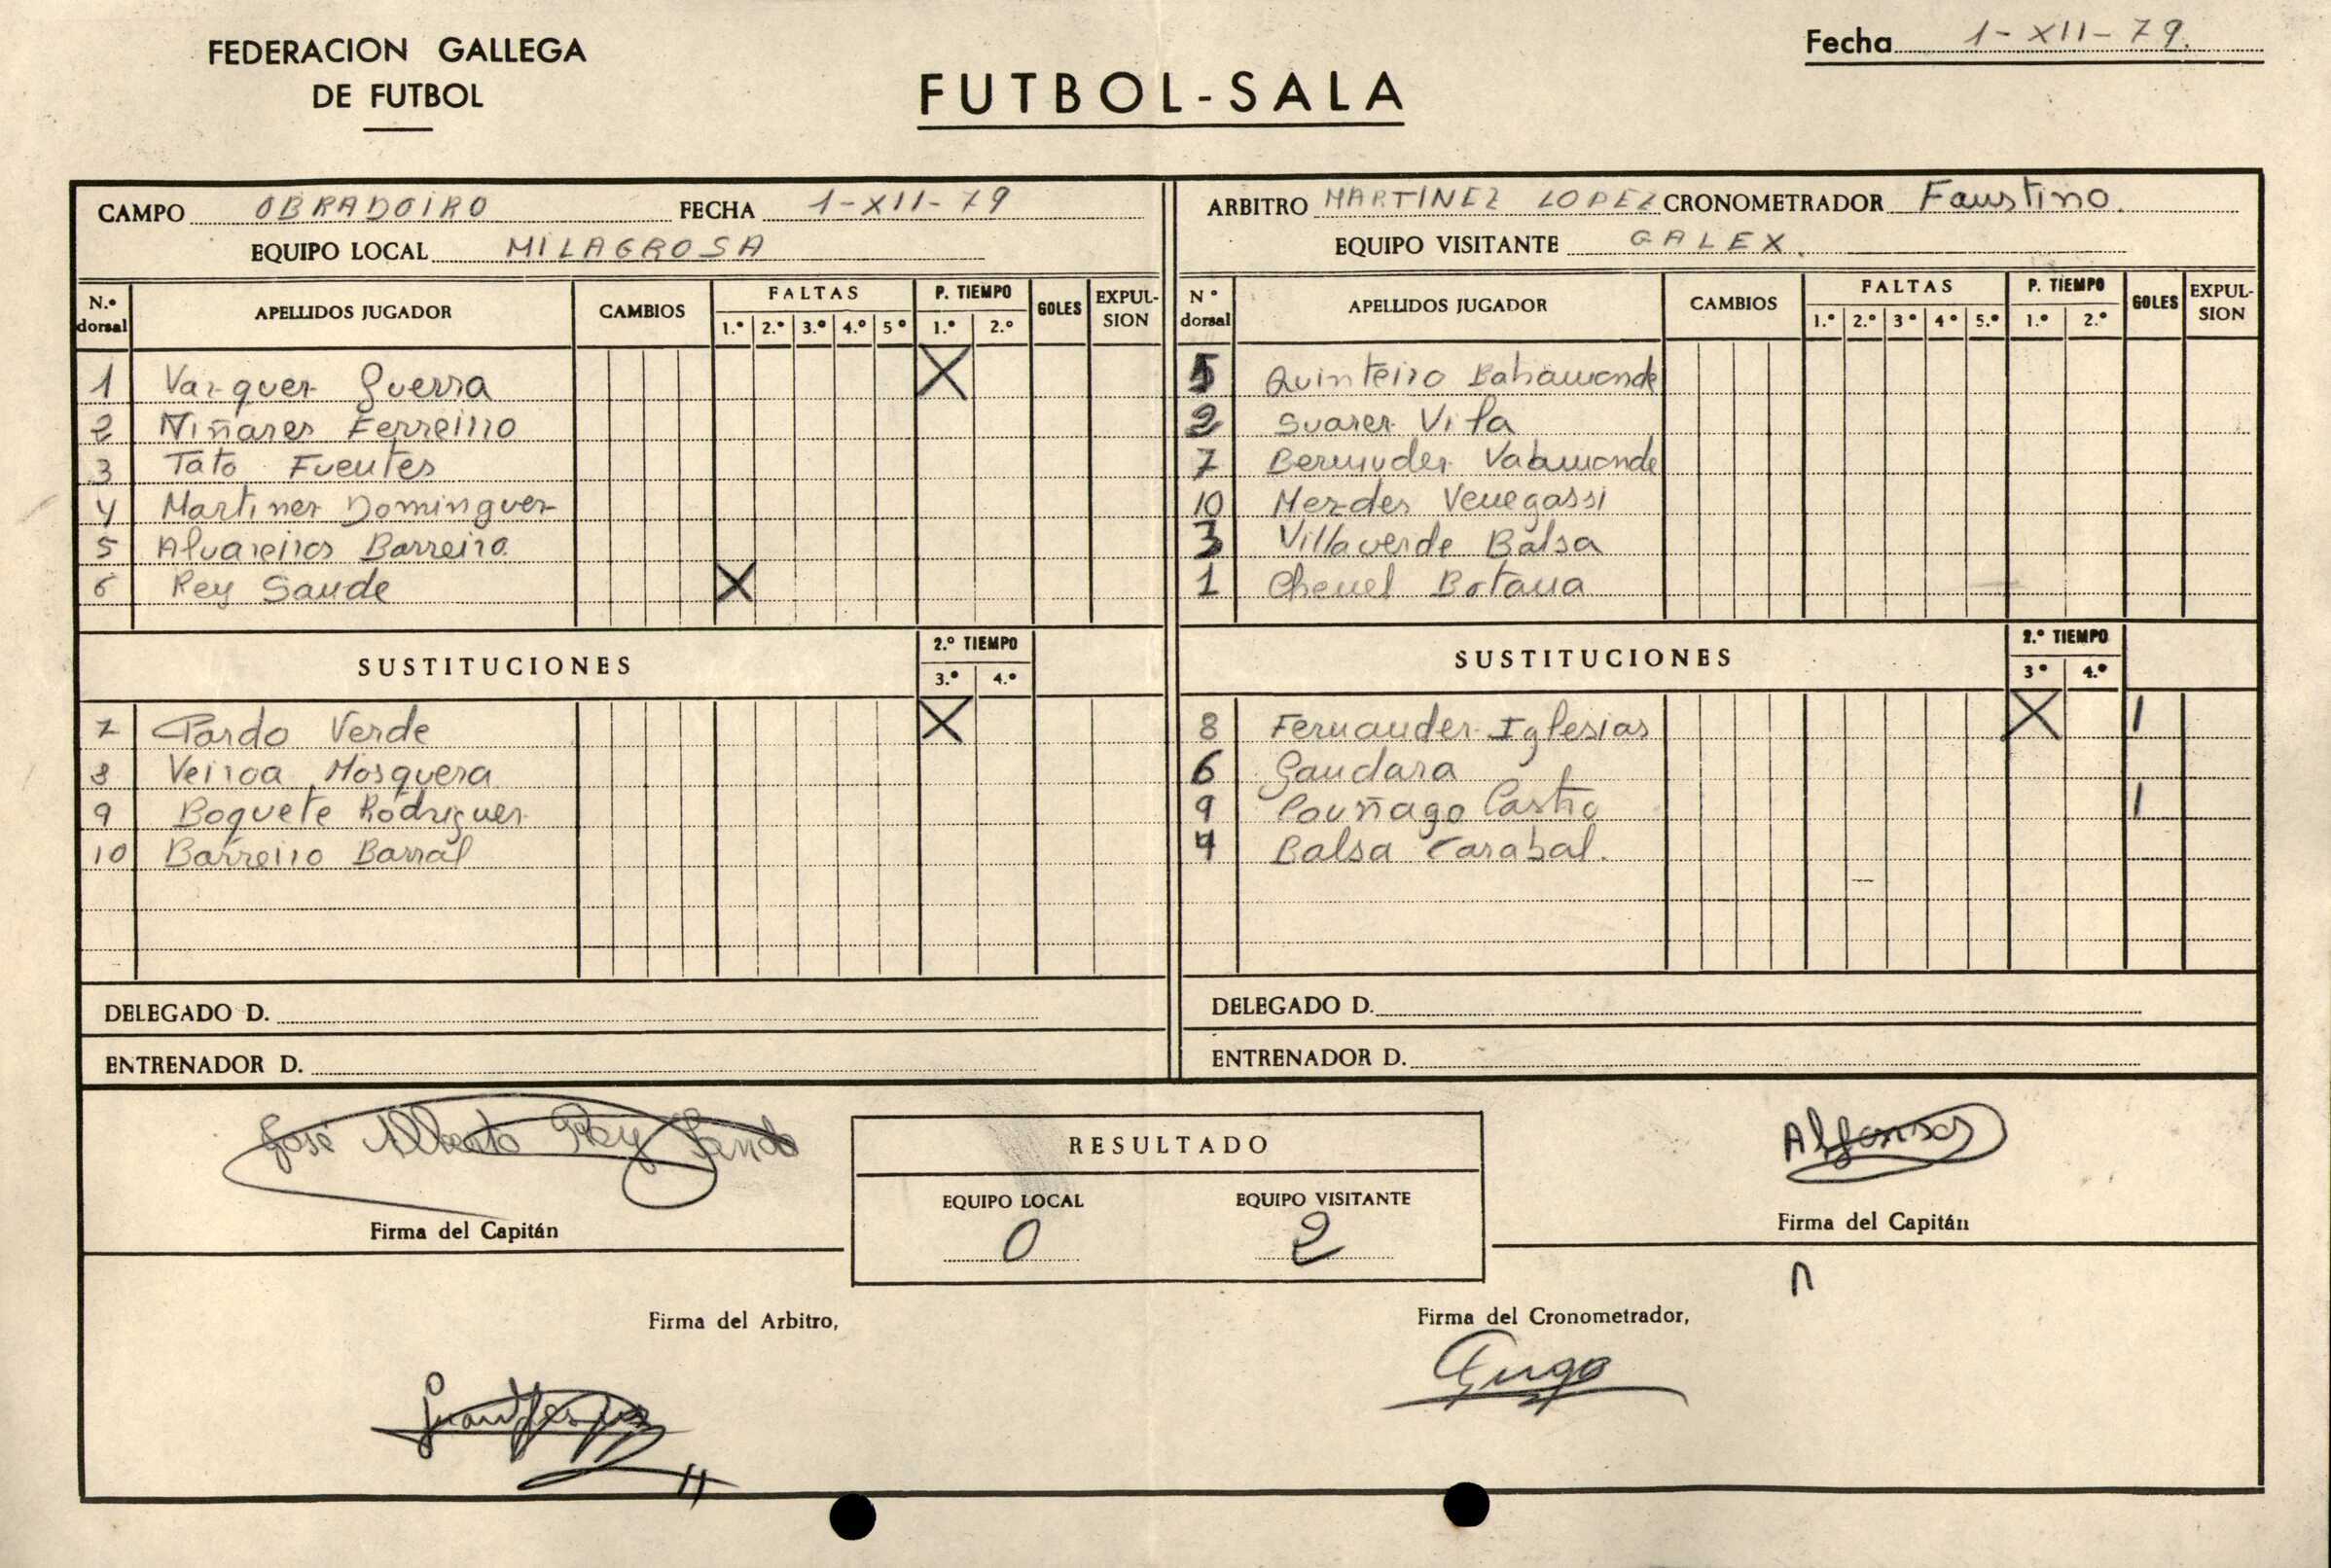 FEDERACION GALLEGA
DE FUTBOL
FUTBOL-SALA
Fecha 1-XII-79.
CAMPO OBRADOIRO FECHA 1-XII-79
EQUIPO LOCAL MILAGROSA
N.º dorsal APELLIDOS JUGADOR CAMBIOS FALTAS 1.º 2.º 3.º 4.º 5º P. TIEMPO 1.º 2.º GOLES EXPULSION
1 Vazquez Guerra X
2 Miñares Ferreiro
3 Tato Fuentes
4 Martinez Dominguez
5 Alvareiros Barreiro
6 Rey Saude X
SUSTITUCIONES 2.º TIEMPO 3.º 4.º
7 Pardo Verde X
8 Veiroa Mosquera
9 Boquete Rodriguez
10 Barreiro Barral
DELEGADO D.
ENTRENADOR D.
ARBITRO MARTINEZ LOPEZ CRONOMETRADOR Faustino.
EQUIPO VISITANTE GALEX
Nº dorsal APELLIDOS JUGADOR CAMBIOS FALTAS 1.º 2.º 3º 4º 5.º P. TIEMPO 1.º 2.º GOLES EXPULSION
5 Quinteiro Bahamonde
2 Suarez Vila
7 Bermudez Vaamonde
10 Mendes Venegassi
3 Villaverde Balsa
1 Chenel Botana
SUSTITUCIONES 2.º TIEMPO 3º 4.º
8 Fernandez Iglesias X 1
6 Gandara
9 Castro 1
4 Balsa Carabal.
DELEGADO D.
ENTRENADOR D.
José Alberto Rey Sande
Firma del Capitán
RESULTADO
EQUIPO LOCAL EQUIPO VISITANTE
0 2
Alfonso
Firma del Capitán
Firma del Arbitro,
Firma del Cronometrador,